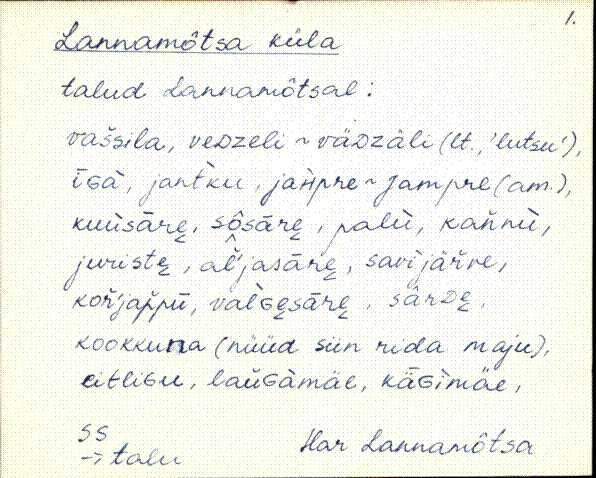 1.
Lannamõtsa küla
talud Lannamõtsal:
vaššila, veDzeli ~ väDzäli (lt., 'lutsu'),
īGà, jant̀ku, jaǹpre ~ Jampre (am.),
kuuisāre̮, sõsāre̮, palù, kaǹnù,
juriste̮, al̆jasāre̮, savijär̀ve,
kor̆jap̀pù, val̀Ge̮sāre̮, sārDe̮,
kookkuna (nüüd siin rida maju),
eitliGu, lauGàmäe, käGìmäe,
SS
→ talu
Har Lannamõtsa